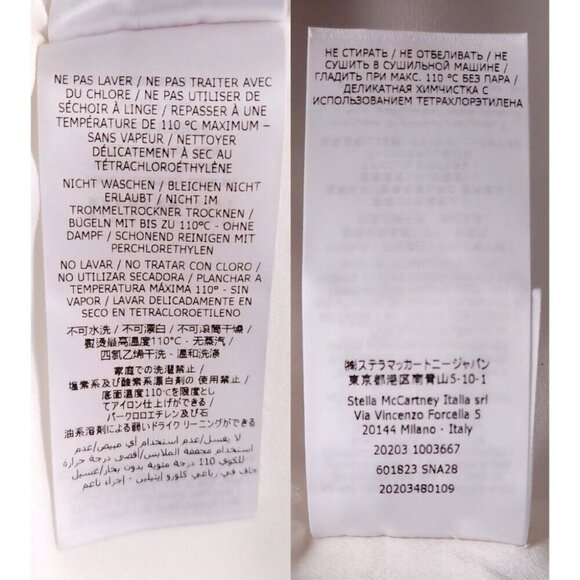 NE PAS LAVER / NE PAS TRAITER AVEC
DU CHLORE / NE PAS UTILISER DE
SÉCHOIR À LINGE / REPASSER À UNE
TEMPÉRATURE DE 110 ºC MAXIMUM –
SANS VAPEUR / NETTOYER
DÉLICATEMENT À SEC AU
TÉTRACHLOROÉTHYLÈNE
NICHT WASCHEN / BLEICHEN NICHT
ERLAUBT / NICHT IM
TROMMELTROCKNER TROCKNEN /
BÜGELN MIT BIS ZU 110ºC - OHNE
DAMPF / SCHONEND REINIGEN MIT
PERCHLORETHYLEN
NO LAVAR / NO TRATAR CON CLORO /
NO UTILIZAR SECADORA / PLANCHAR
A TEMPERATURA MÁXIMA 110º - SIN
VAPOR / LAVAR DELICADAMENTE EN
SECO EN TETRACLOROETILENO
不可水洗 / 不可漂白 / 不可滾筒干燥 /
熨烫最高温度110°C - 无蒸汽 /
四氯乙烯干洗 - 温和洗涤
家庭での洗濯禁止 /
塩素系及び酸素系漂白剤の 使用禁止 /
底面温度110℃を限度とし
てアイロン仕上げができる /
パークロロエチレン及び石
油系溶剤による弱いドライク リーニングができる
لا يغسل/عدم استخدام أي مبيض/عدم
استخدام مجففة الملابس/أقصى درجة حرارة
للكوي 110 درجة مئوية بدون بخار/غسيل
جاف في رباعي كلورو إيثيلين - إجراء ناعم
НЕ СТИРАТЬ / НЕ ОТБЕЛИВАТЬ / НЕ
СУШИТЬ В СУШИЛЬНОЙ МАШИНЕ /
ГЛАДИТЬ ПРИ МАКС. 110 ºC БЕЗ ПАРА /
ДЕЛИКАТНАЯ ХИМЧИСТКА С
ИСПОЛЬЗОВАНИЕМ ТЕТРАХЛОРЭТИЛЕНА
㈱ステラマッカートニージャパン
東京都港区南青山5-10-1
Stella McCartney Italia srl
Via Vincenzo Forcella 5
20144 Milano - Italy
20203 1003667
601823 SNA28
20203480109